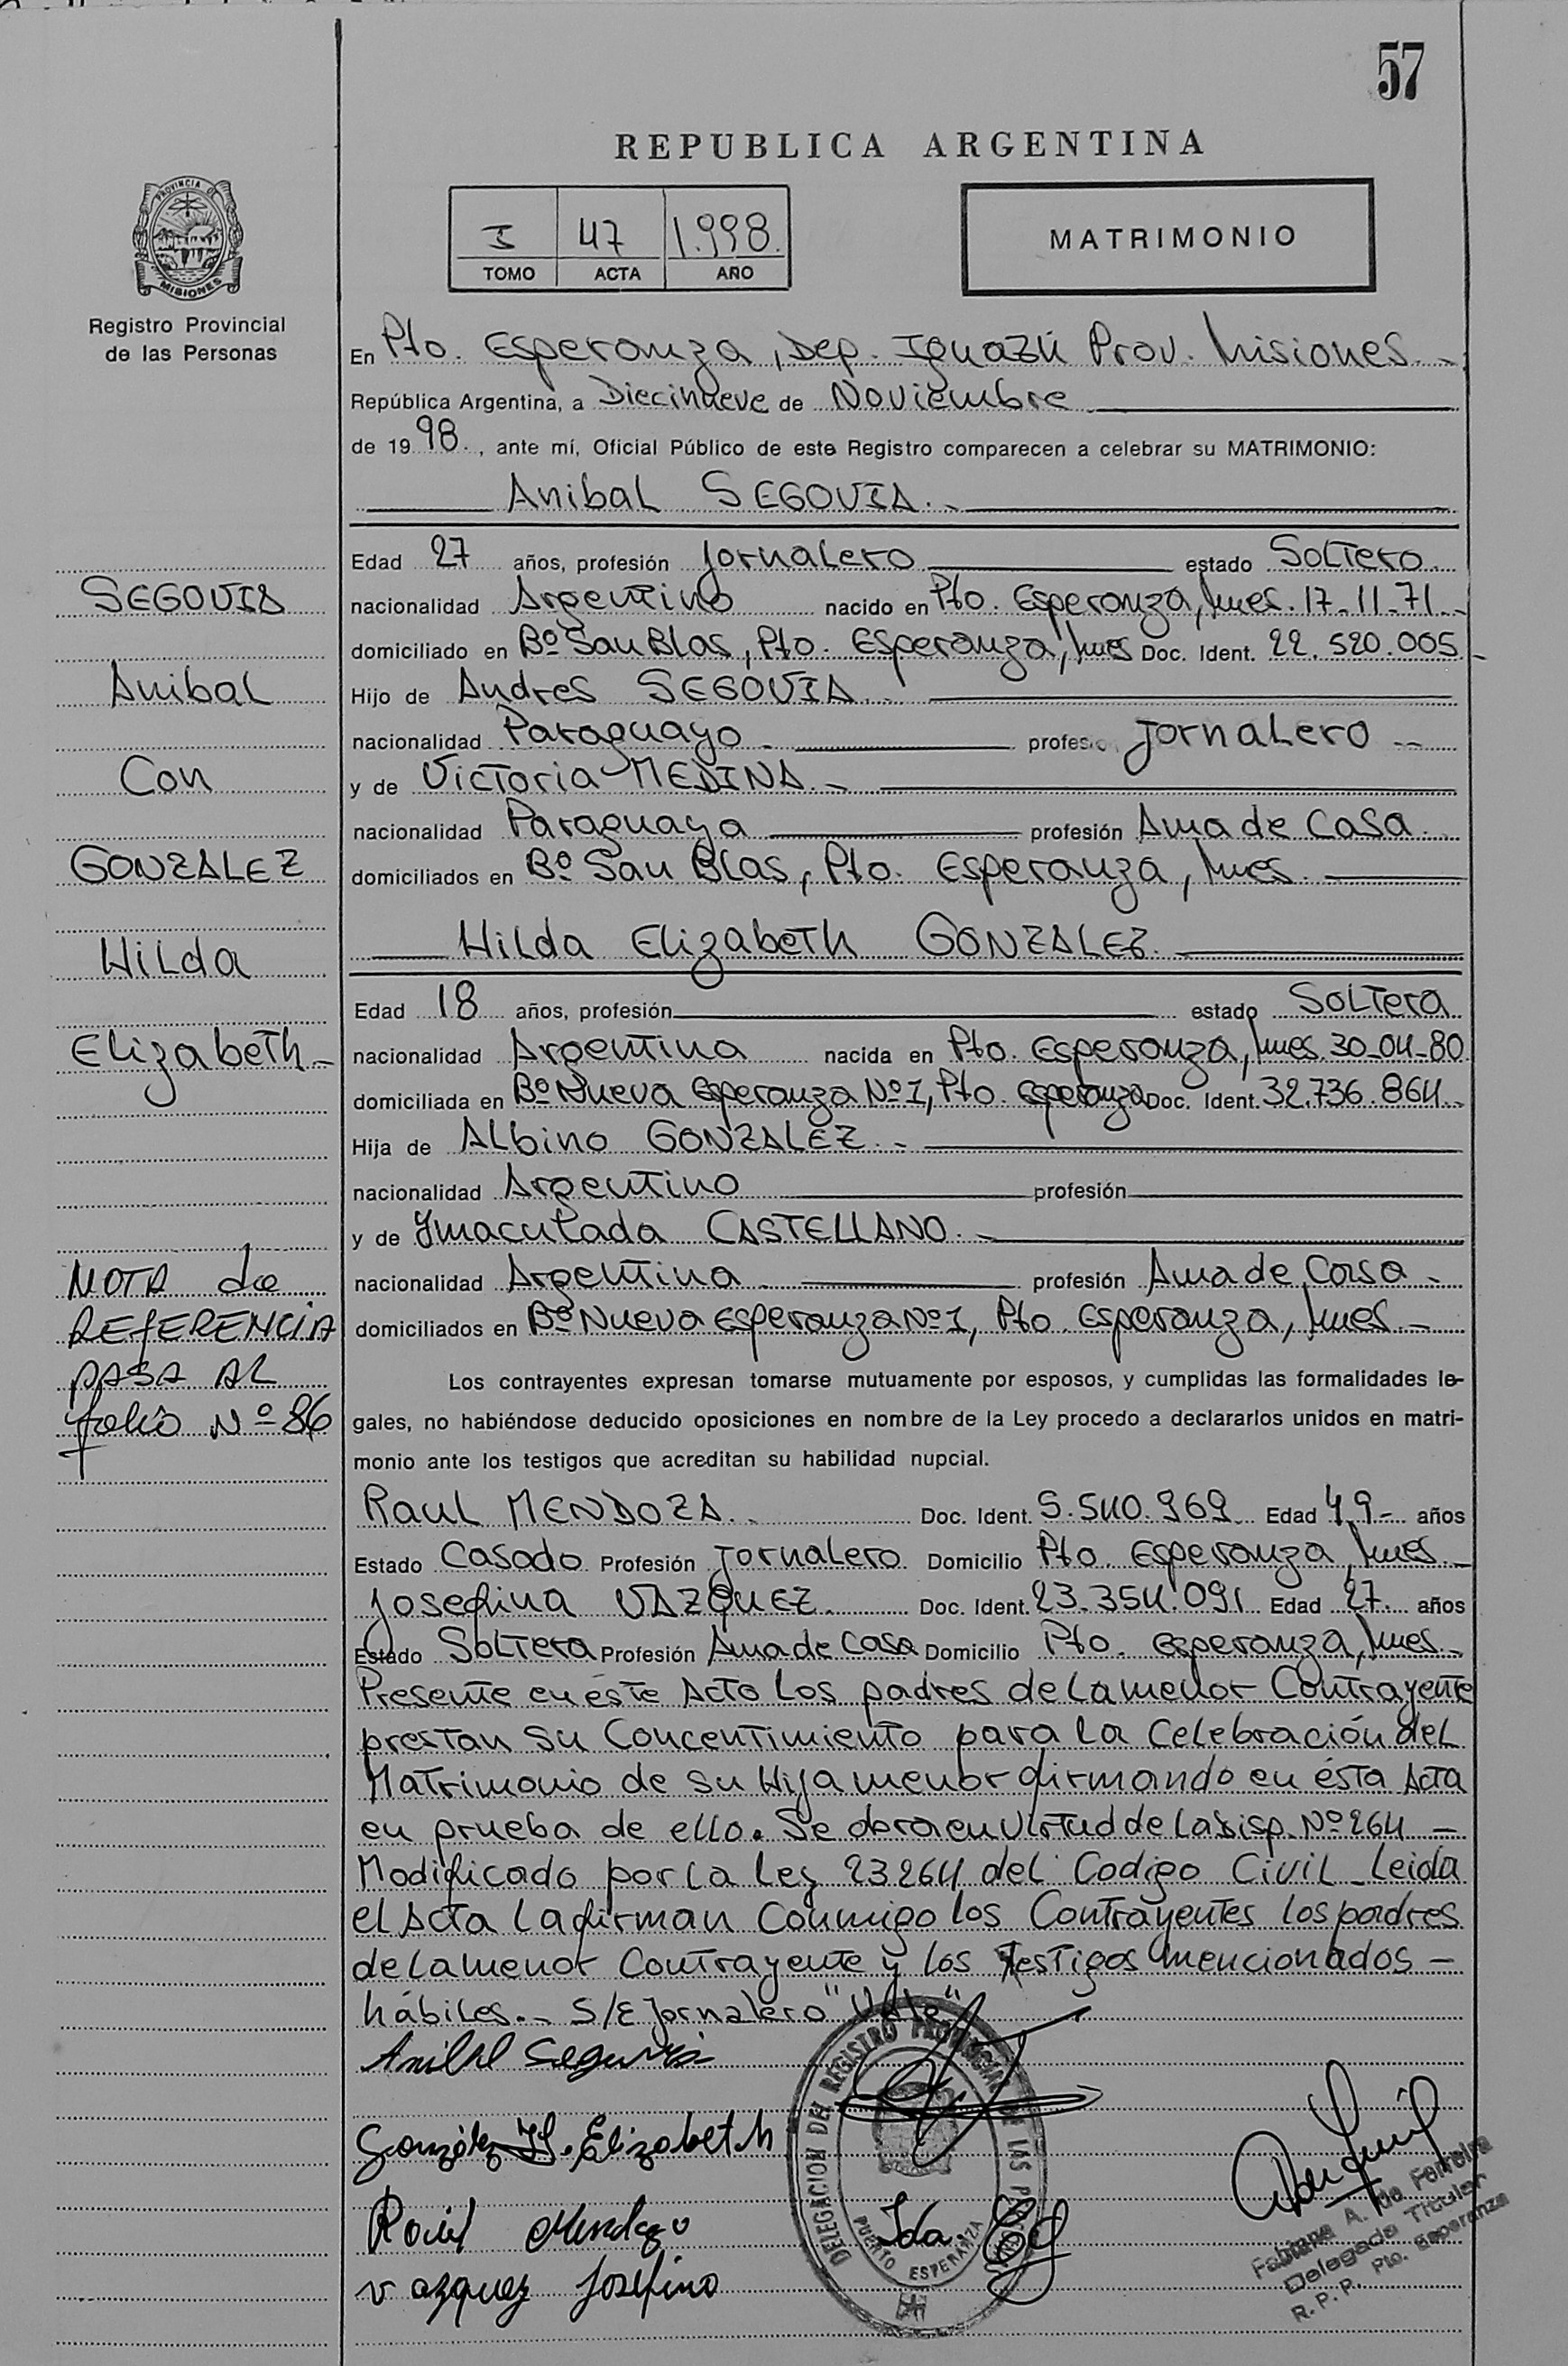 57
REPUBLICA ARGENTINA
PROVINCIA DE
MISIONES
Registro Provincial
de las Personas
I 47 1.998.
TOMO ACTA AÑO
MATRIMONIO
En Pto. Esperanza, Dep. Iguazú Prov. Misiones.-
República Argentina, a Diecinueve de Noviembre
de 1998., ante mí, Oficial Público de este Registro comparecen a celebrar su MATRIMONIO:
Anibal SEGOVIA.-
Edad 27 años, profesión Jornalero estado Soltero.
SEGOVIA
nacionalidad Argentino nacido en Pto. Esperanza, Mnes. 17-11-71.-
domiciliado en Bº San Blas, Pto. Esperanza, Mnes Doc. Ident. 22.520.005.-
Anibal
Hijo de Andres SEGOVIA.
nacionalidad Paraguayo profesio Jornalero --
Con
y de Victoria MEDINA.-
nacionalidad Paraguaya profesión Ama de Casa.
GONZALEZ
domiciliados en Bº San Blas, Pto. Esperanza, Mnes.
Hilda Elizabeth GONZALEZ.
Hilda
Edad 18 años, profesión estado Soltera
Elizabeth.-
nacionalidad Argentina nacida en Pto. Esperanza, Mnes. 30-04-80
domiciliada en Bº Nueva Esperanza Nº1, Pto. Esperanza Doc. Ident. 32.736.864.-
Hija de Albino GONZALEZ.-
nacionalidad Argentino profesión
y de Imaculada CASTELLANO.-
NOTA de
nacionalidad Argentina profesión Ama de Casa -
REFERENCIA
domiciliados en Bº Nueva Esperanza Nº1, Pto. Esperanza, Mnes.-
PASA AL
folio Nº 86
Los contrayentes expresan tomarse mutuamente por esposos, y cumplidas las formalidades le-
gales, no habiéndose deducido oposiciones en nombre de la Ley procedo a declararlos unidos en matri-
monio ante los testigos que acreditan su habilidad nupcial.
Raul MENDOZA. Doc. Ident. 5.540.969 Edad 49.- años
Estado Casado Profesión Jornalero Domicilio Pto. Esperanza, Mnes.-
Josefina VAZQUEZ. Doc. Ident. 23.354.091 Edad 27. años
Estado Soltera Profesión Ama de Casa Domicilio Pto. Esperanza, Mnes.-
Presente en éste Acto los padres de la menor Contrayente
prestan su Concentimiento para la Celebración del
Matrimonio de su Hija menor firmando en ésta Acta
en prueba de ello. Se obra en virtud de la Disp. Nº 264 -
Modificado por la Ley 23264 del Codigo Civil - Leida
el Acta la firman Conmigo los Contrayentes los padres
de la menor Contrayente y los Testigos mencionados -
hábiles.- S/E Jornalero "Vale"
Anibal Segovia
Gonzalez H. Elizabeth
Raul Mendoza
Vazquez Josefina
DELEGACION DEL REGISTRO PROVINCIAL DE LAS
PUERTO ESPERANZA
A. de Ferreira
Delegada Titular
R. P. P. Pto. Esperanza